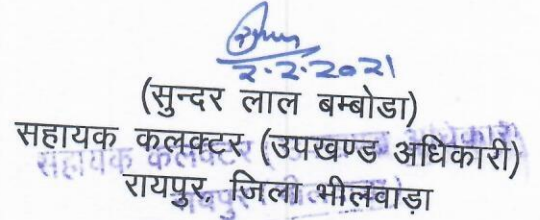 2.2.2021
(सुन्दर लाल बम्बोडा)
सहायक कलक्टर (उपखण्ड अधिकारी)
रायपुर, जिला भीलवाड़ा
सहायक कलक्टर